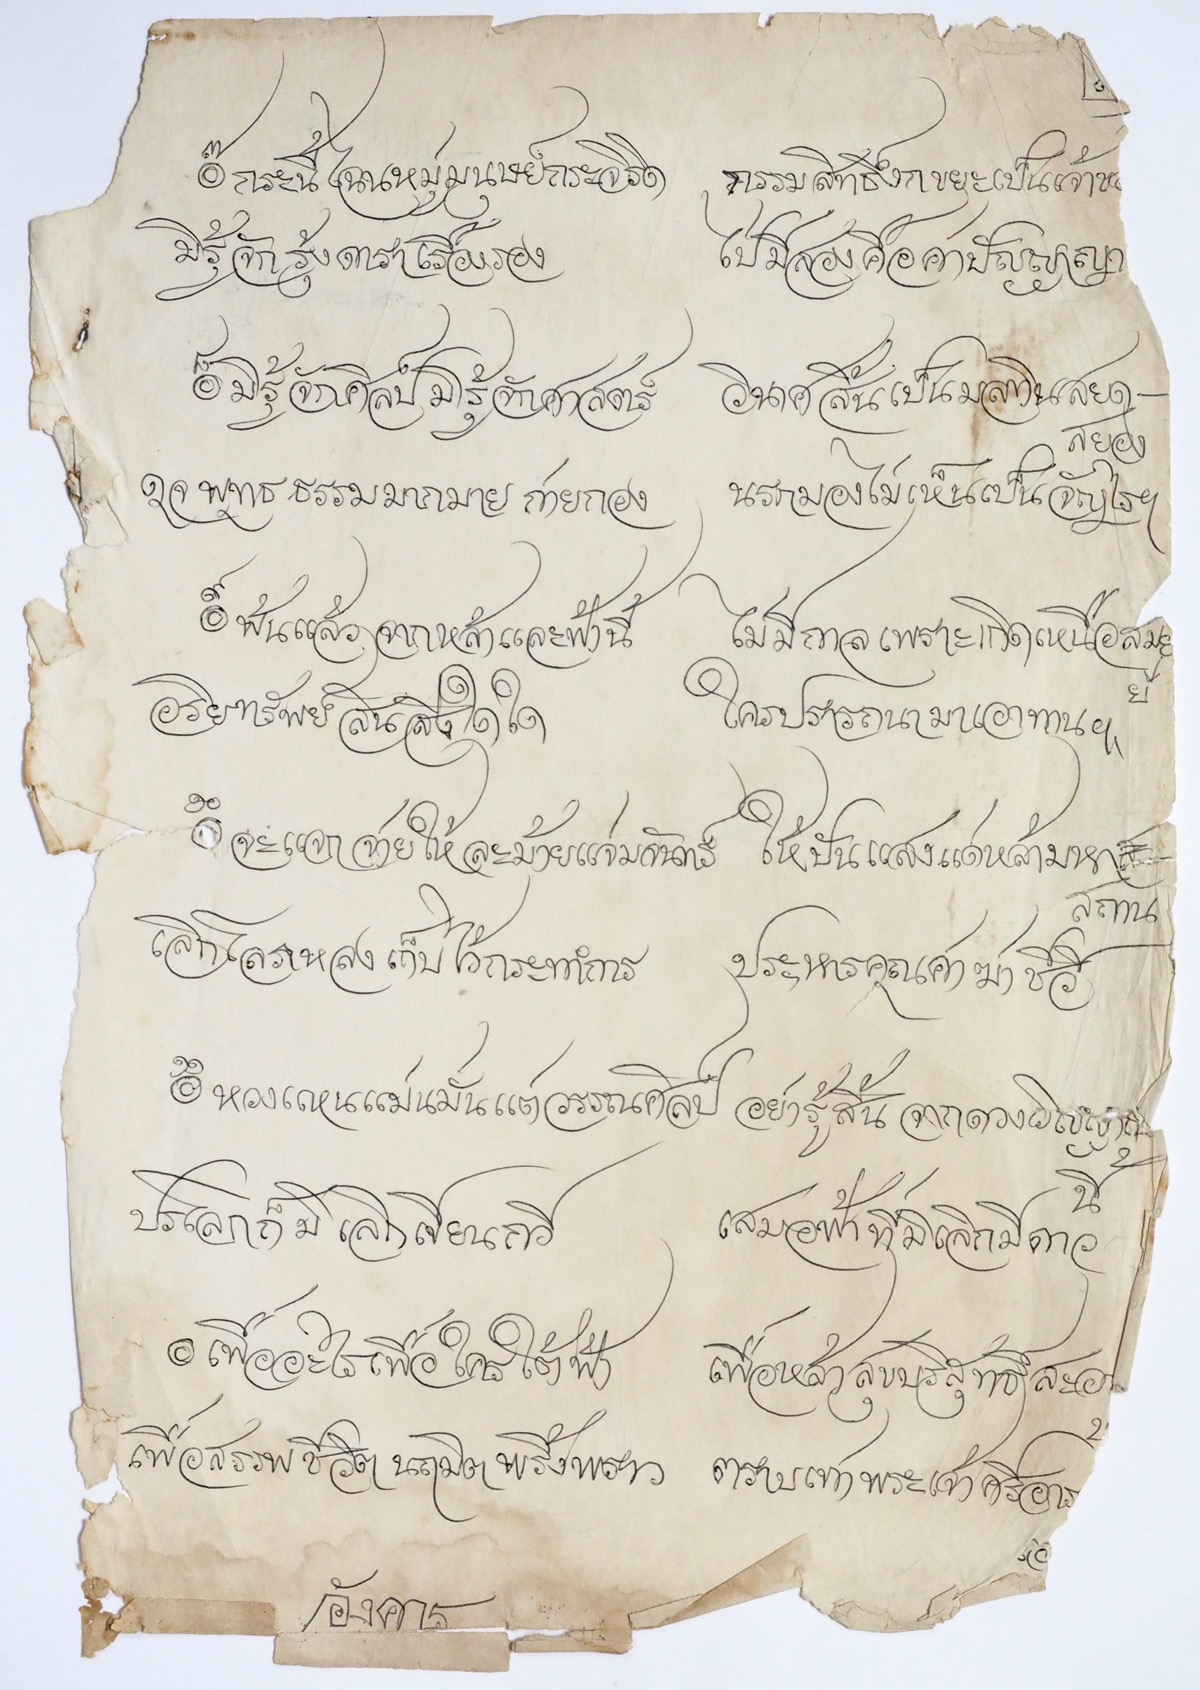 ๏ กระนี้ไฉนหมู่มนุษย์กระจริด กรรมสิทธิ์งกขยะเป็นเจ้า
มิรู้จักรุ้งดาราเรื่อรอง ไป่มีสองคือค่าปัญญญา
๏ มิรู้จักศิลป์มิรู้จักศาสตร์ วินาศสิ้นเป็นมลทินสยด—
สยอง
ดูจพุทธธรรมมากมายก่ายกอง นรกมองไม่เห็นเป็นจัญไรฯ
๏ พ้นแล้วจากหล้าและฟ้านี้ ไม่มีกาลเพราะเกิดเหนือสมัย
อริยทรัพย์สินสิ่งใดใด ใครปรารถนามาเอาทานฯ
๏ จะแจกจ่ายให้ละม้ายแจ่มจันทร์ ให้ปันแสงแด่หล้ามหา
สถาน
เลิกโลภหลงเก็บไว้กระทำการ ประหารคุณค่าฆ่าชีวี
๏ หวงแหนแม่นมั่นแต่วรรณศิลป์ อย่ารู้สิ้นจากดวงวิญญาณ
นี้
ปรโลกก็มิเลิกเขียนกวี เสมอฟ้าที่มิเลิกมีดาว
๏ เพื่ออะไรเพื่อใครใต้ฟ้า เพื่อหล้าสุขบริสุทธิ์สะอา
เพื่อสรรพชีวิตนฤมิตพริ้งพราว ตราบเท่าพระเจ้าศรีอาร
อังคาร